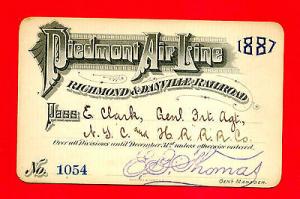 Piedmont Air Line
1887
RICHMOND & DANVILLE RAILROAD
Pass E. Clark, Genl. Frt. Agt.,
N. Y. C. and H. R. R. R. Co.
Over all Divisions until December 31st unless otherwise ordered.
No. 1054
E. B. Thomas
GEN'L MANAGER.